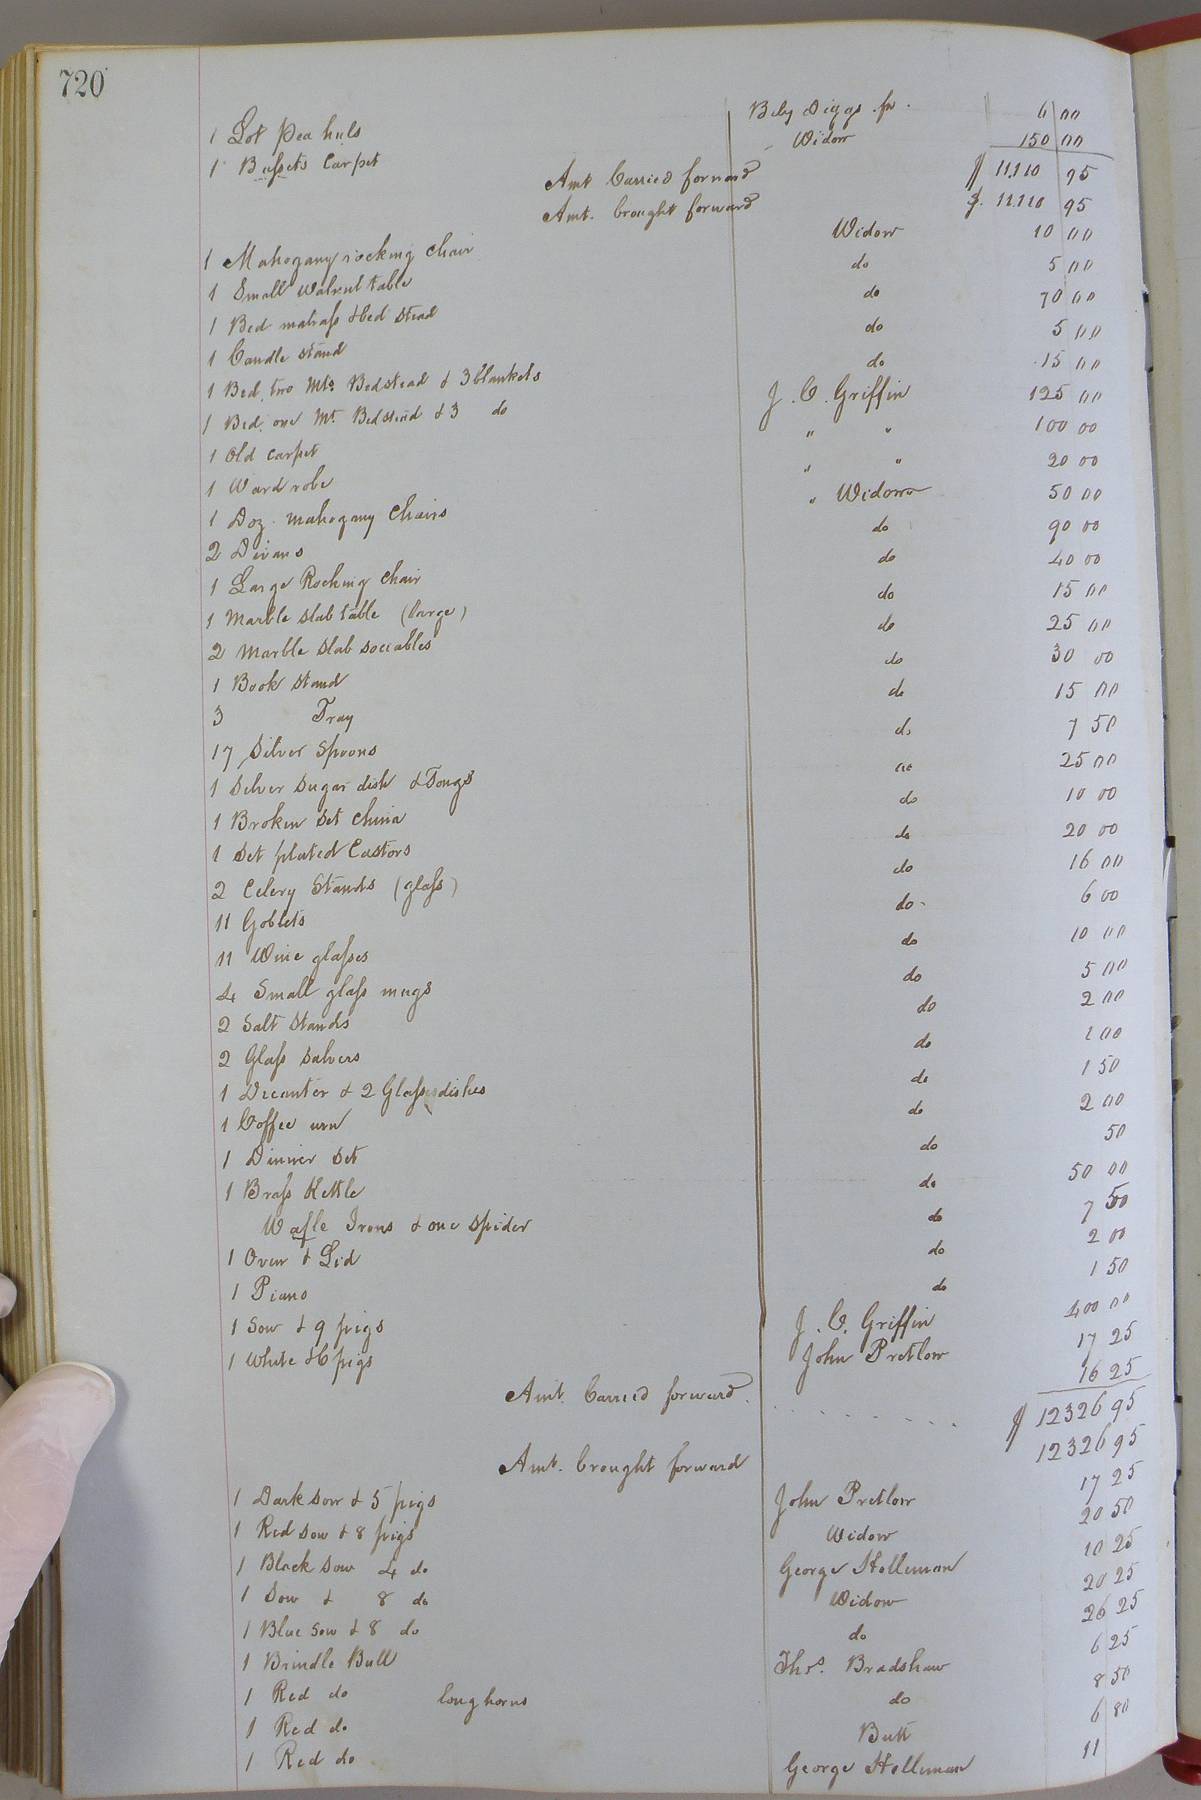 720
1 Lot Pea huls Bely Diggs fr. 6 00
1 Bussets Carpet Widow 150 00
Amt Carried forward $ 11,110 95
Amt. brought forward $. 11.110 95
1 Mahogany rocking chair Widow 10 00
1 Small walnut table do 5 00
1 Bed matrass & bed stead do 70 00
1 Candle stand do 5 00
1 Bed, two Mts. Bedstead & 3 blankets do 15 00
1 Bed, one Mt. Bedstead & 3 do J. C. Griffin 125 00
1 Old carpet " " 100 00
1 Ward robe " " 20 00
1 Doz. mahogany Chairs " Widow 50 00
2 Divans do 90 00
1 Large Rocking chair do 40 00
1 Marble slab table (large) do 15 00
2 Marble slab sociables do 25 00
1 Book stand do 30 00
3 Tray do 15 00
17 Silver Spoons do 7 50
1 Silver Sugar dish & Tongs do 25 00
1 Broken Set china do 10 00
1 Set plated Castors do 20 00
2 Celery Stands (glass) do 16 00
11 Goblets do 6 00
11 Wine glasses do 10 00
4 Small glass mugs do 5 00
2 Salt Stands do 2 00
2 Glass Salvers do 1 00
1 Decanter & 2 Glass dishes do 1 50
1 Coffee urn do 2 00
1 Dinner Set do 50
1 Brass Kettle do 50 00
Wafle Irons & one Spider do 7 50
1 Oven & Lid do 2 00
1 Piano do 1 50
1 Sow & 9 pigs J. C. Griffin 400 00
1 White & 6 pigs John Pretlow 17 25
16 25
Amt. Carried forward $ 12326 95
Amt. brought forward 12326 95
1 Dark sow & 5 pigs John Pretlow 17 25
1 Red sow & 8 pigs Widow 20 50
1 Black Sow 4 do George Holleman 10 25
1 Sow & 8 do Widow 20 25
1 Blue Sow & 8 do do 26 25
1 Brindle Bull Thos. Bradshaw 6 25
1 Red do long horns do 8 50
1 Red do Butt 6 80
1 Red do George Holleman 11